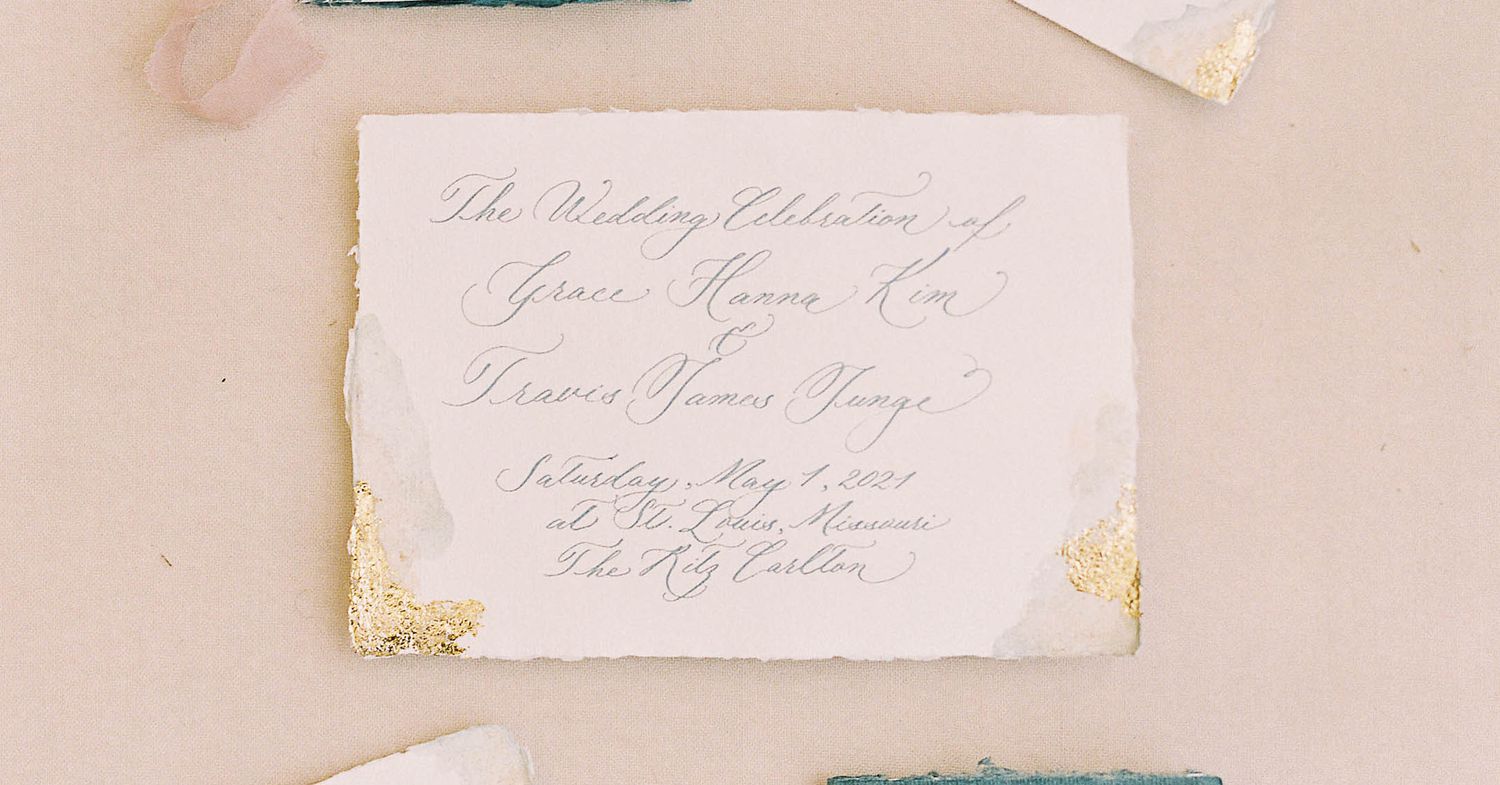 The Wedding Celebration of
Grace Hanna Kim
&
Travis James Junge
Saturday, May 1, 2021
at St. Louis, Missouri
The Ritz Carlton